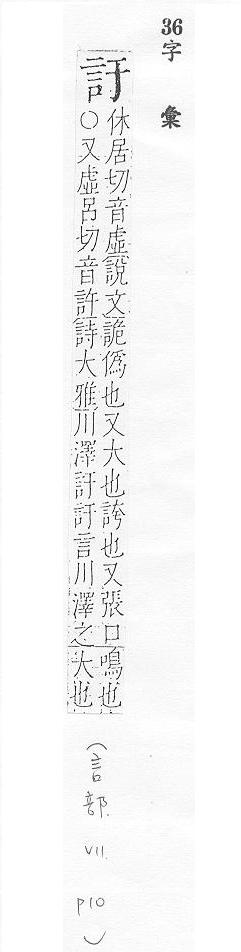 36字彙
訏
休居切音虛說文詭僞也又大也誇也又張口鳴也
○又虛呂切音許詩大雅川澤訏訏言川澤之大也
（言部. VII. P10）